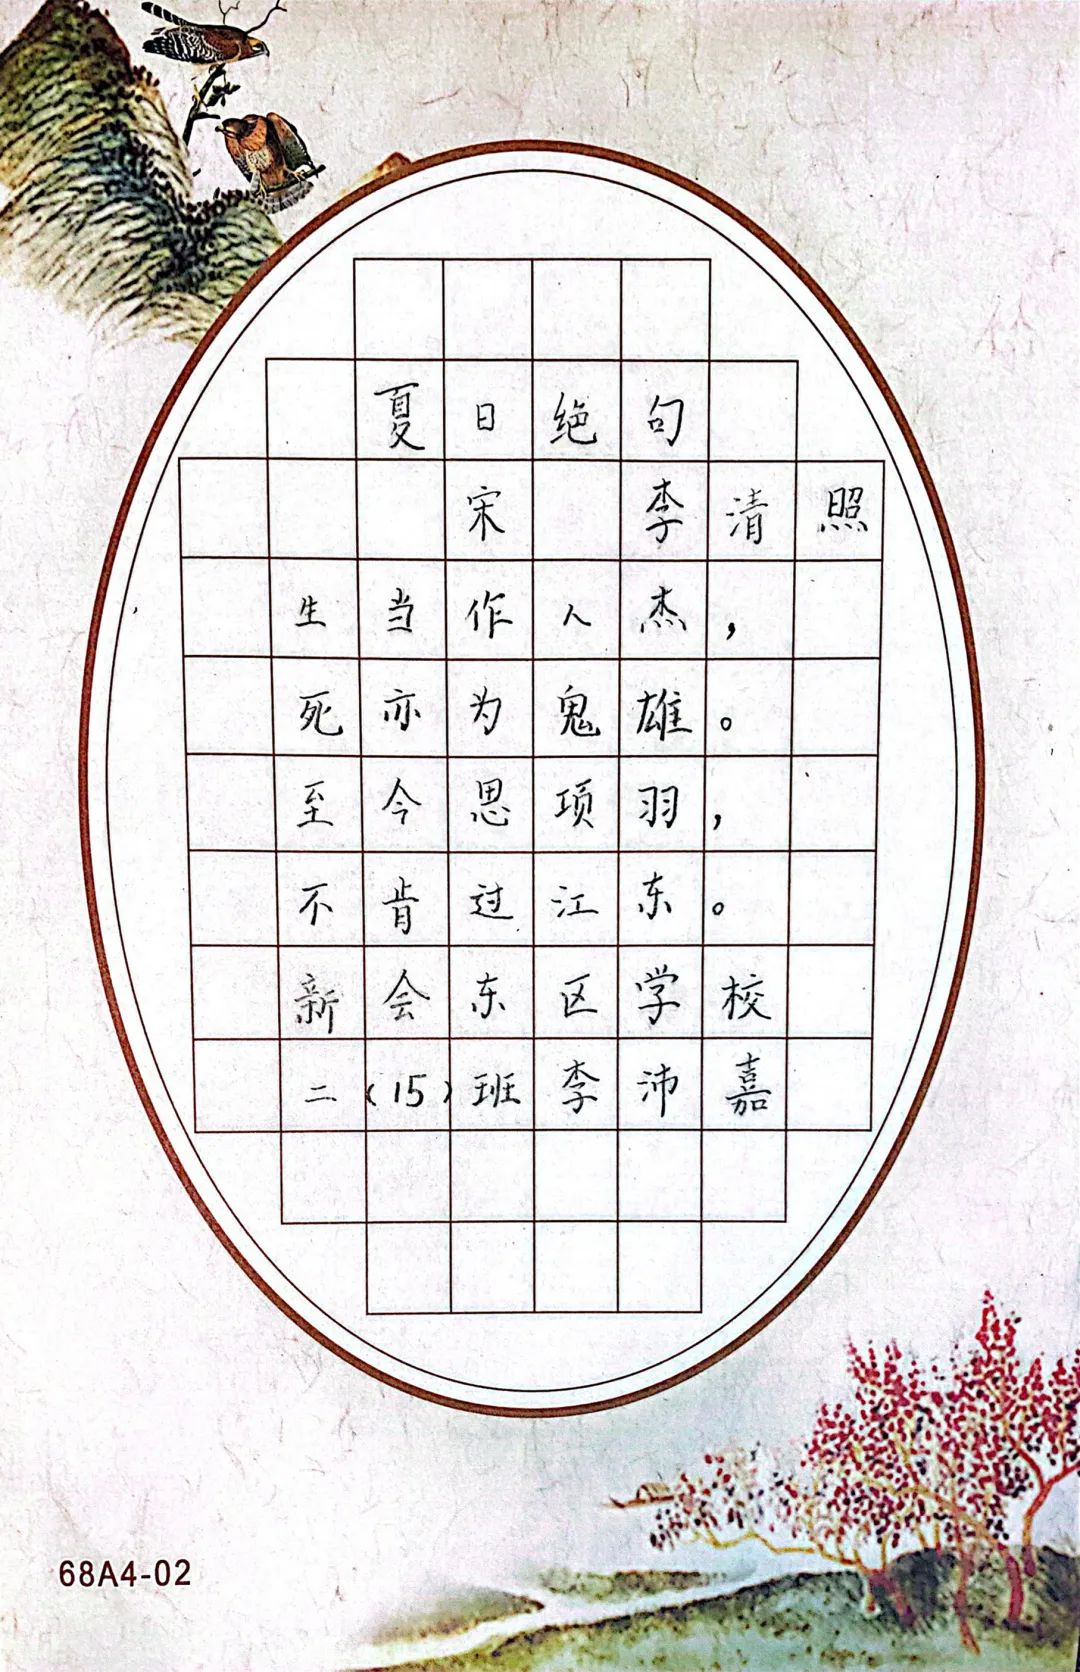 夏日绝句
宋 李清照
生当作人杰，
死亦为鬼雄。
至今思项羽，
不肯过江东。
新会东区学校
二（15）班李沛嘉
68A4-02